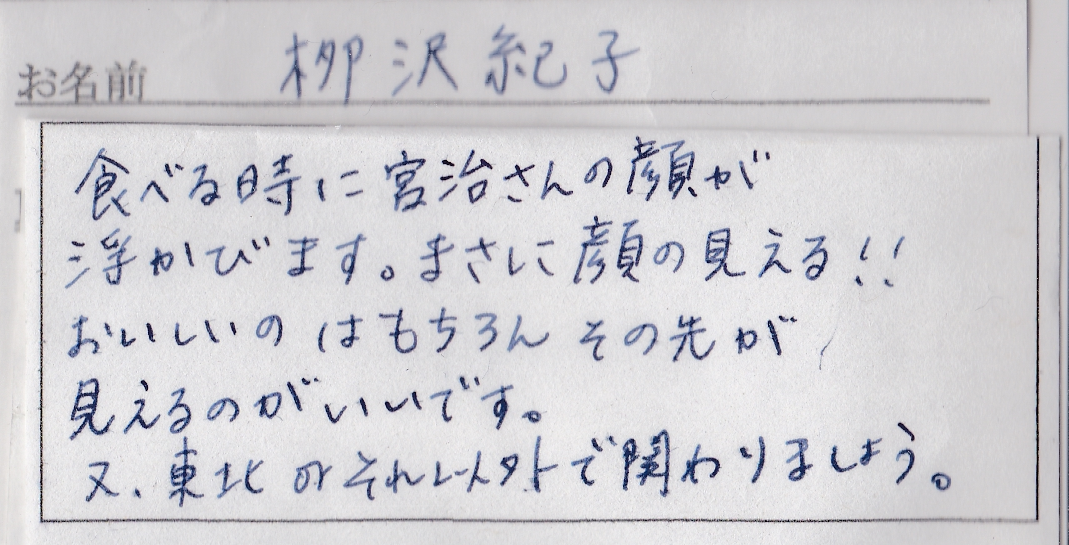 お名前 柳沢紀子
食べる時に宮治さんの顔が
浮かびます。まさに顔の見える!!
おいしいのはもちろん その先が
見えるのがいいです。
又、東北 or それ以外で関わりましょう。